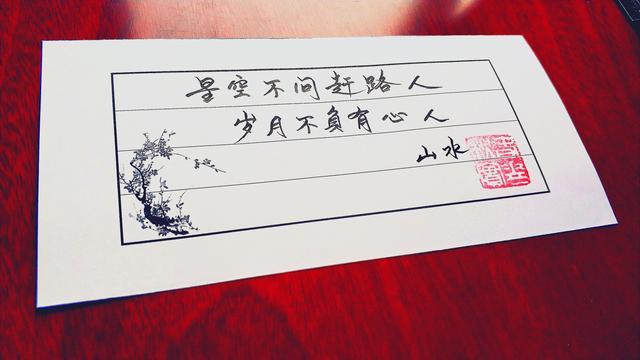 星空不问赶路人
岁月不負有心人
山水